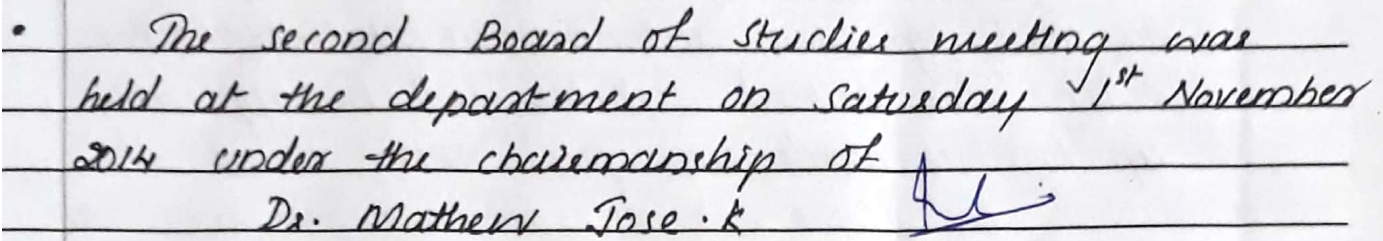 • The second Board of Studies meeting was
held at the department on Saturday 1st November
2014 under the chairmanship of
Dr. Mathew Jose . K